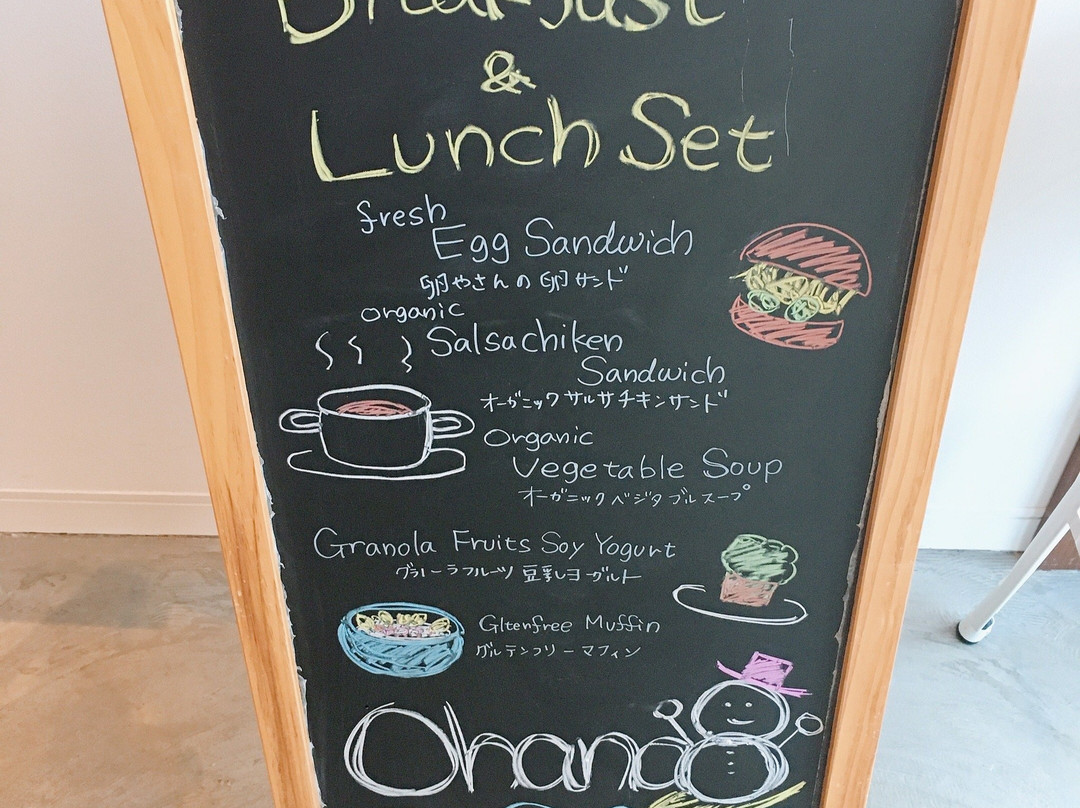 Breakfast
&
Lunch Set
fresh
Egg Sandwich
卵やさんの卵サンド
organic
Salsachiken
Sandwich
オーガニックサルサチキンサンド
Organic
Vegetable Soup
オーガニックベジタブルスープ
Granola Fruits Soy Yogurt
グラノーラフルーツ豆乳ヨーグルト
Gltenfree Muffin
グルテンフリーマフィン
Ohana